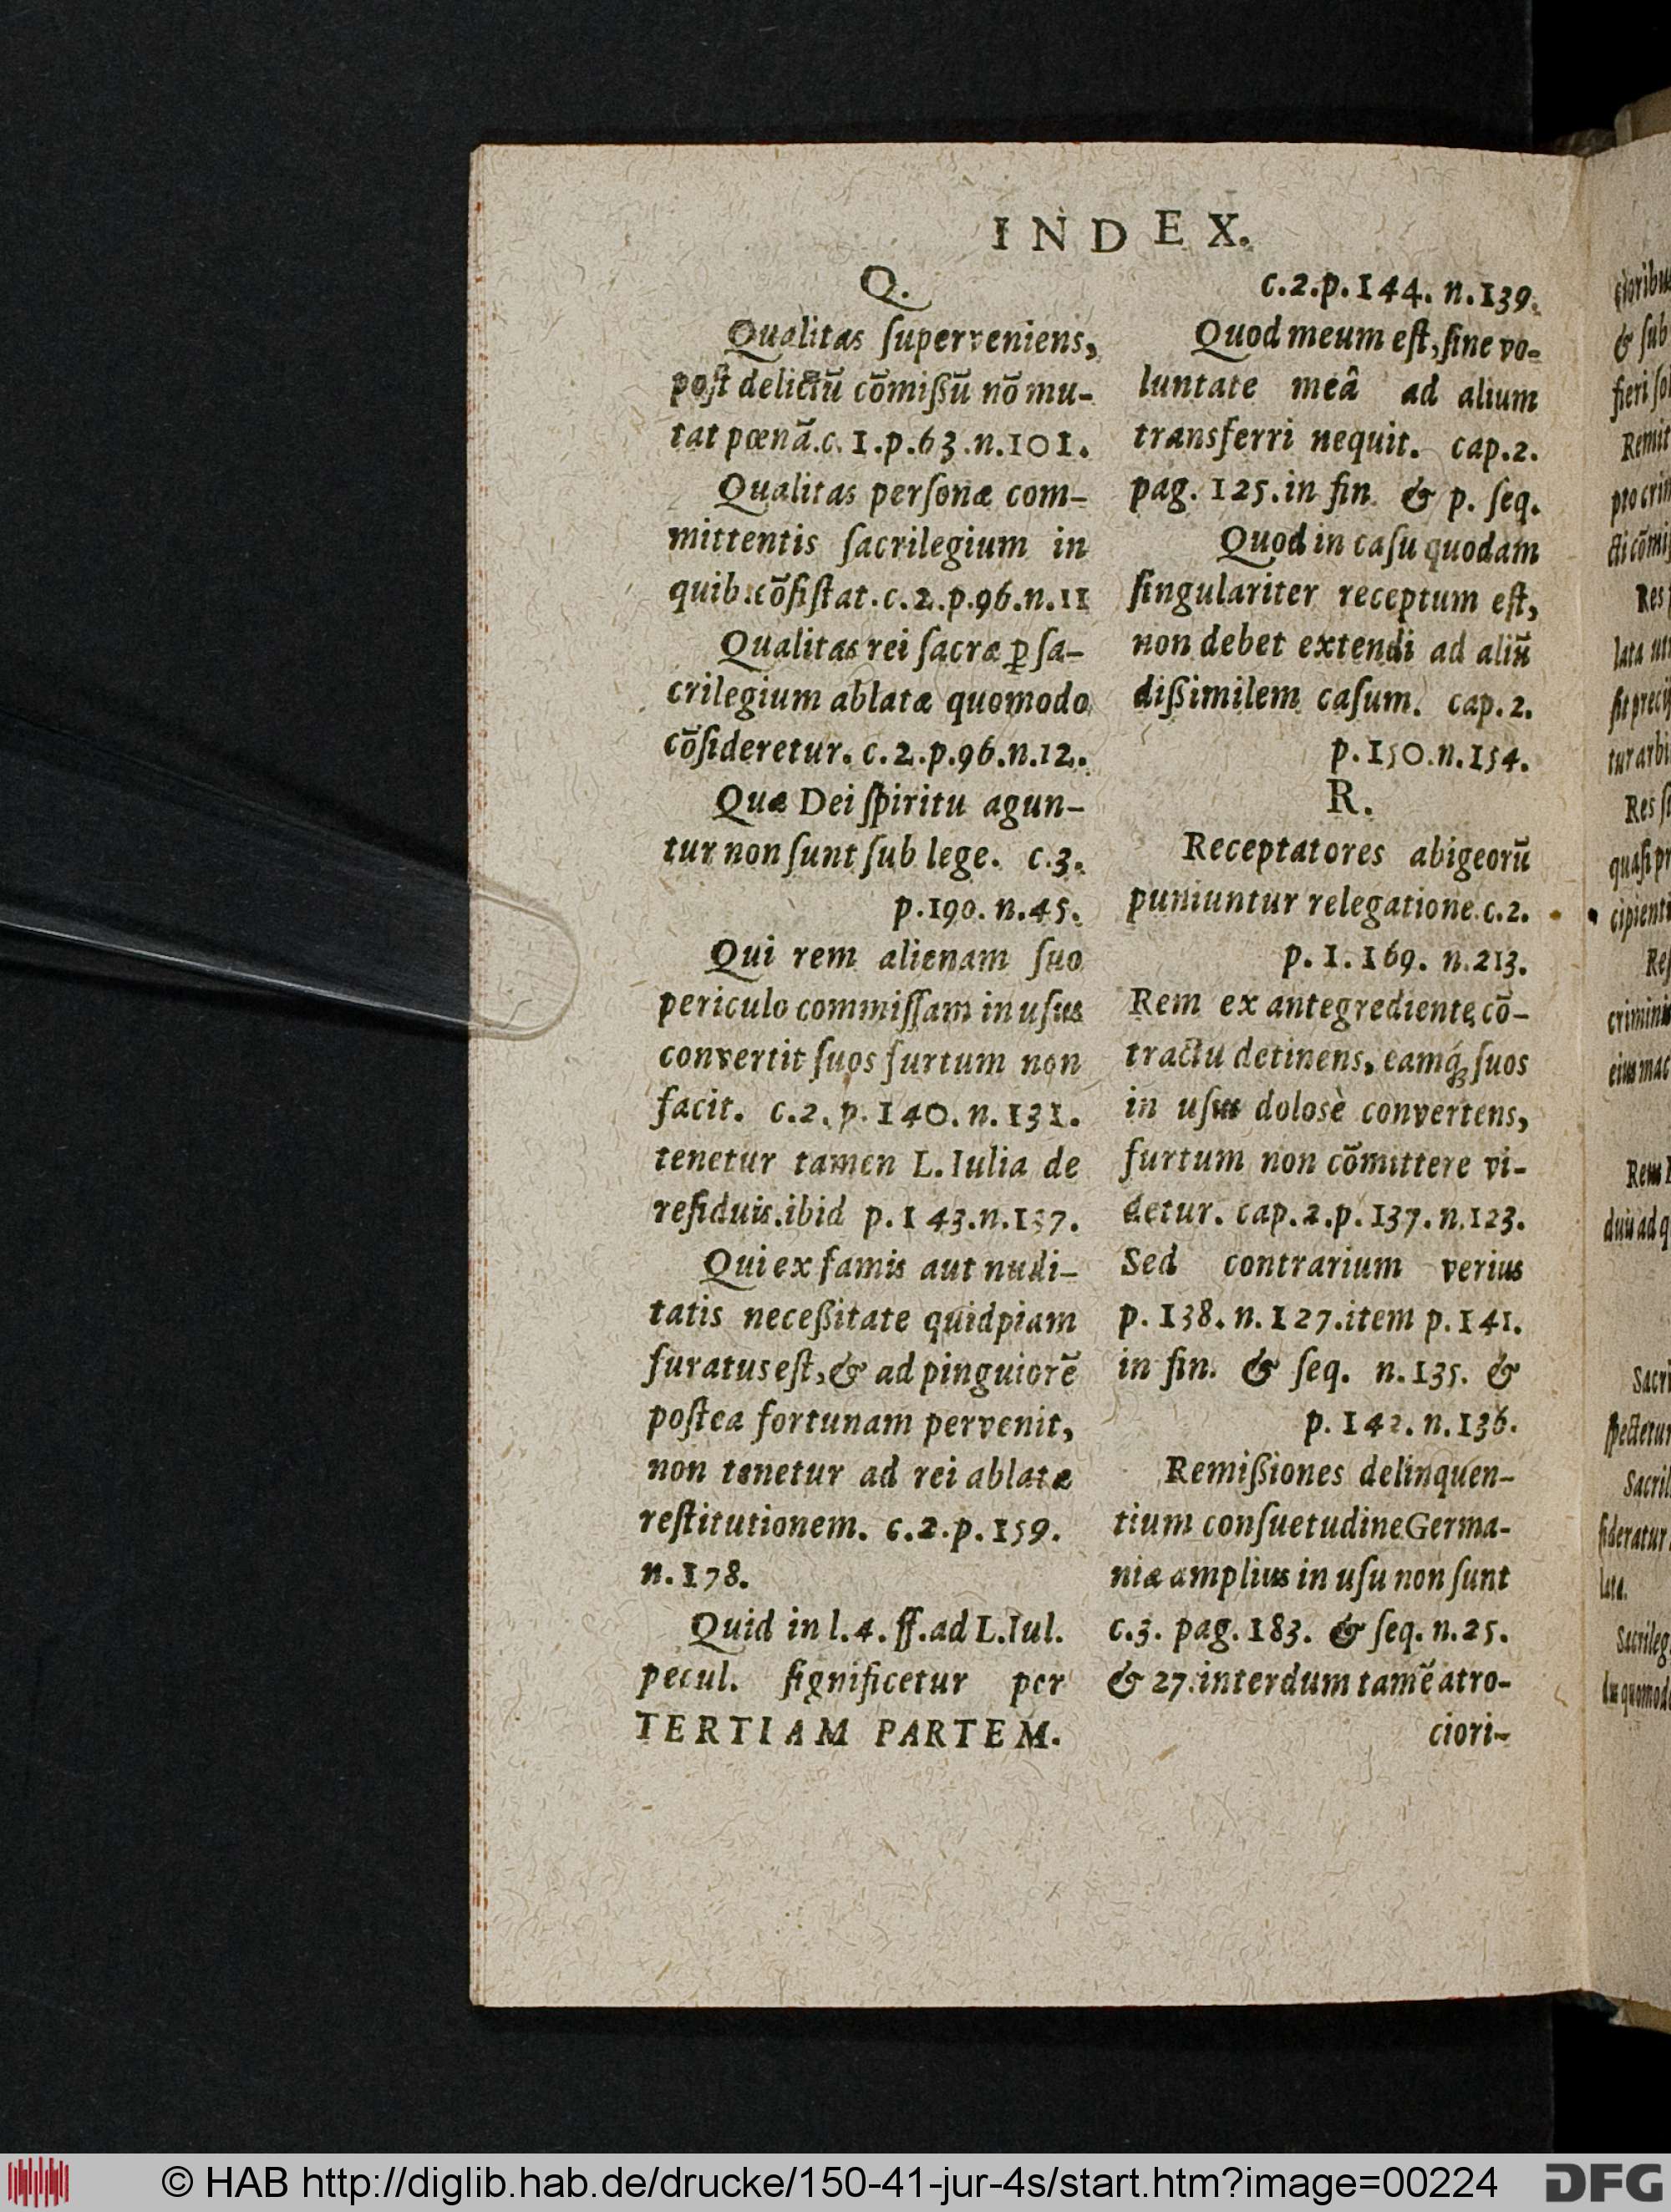 INDEX.
Q.
Qualitas ſuperveniens,
poſt delictū cōmiſsū nō mu-
tat pœnā.c. 1.p.63.n.101.
Qualitas perſonæ com-
mittentis ſacrilegium in
quib.cōſiſtat.c.2.p.96.n.11
Qualitas rei ſacræ ꝑ ſa-
crilegium ablatæ quomodo
cōſideretur. c.2.p.96.n.12.
Quæ Dei ſpiritu agun-
tur non ſunt ſub lege. c.3.
p.190. n.45.
Qui rem alienam ſuo
periculo commiſſam in uſus
convertit ſuos furtum non
facit. c.2. p. 140. n. 131.
tenetur tamen L. Iulia de
reſiduis.ibid p.143.n.137.
Qui ex famis aut nudi-
tatis neceſsitate quidpiam
furatus eſt,& ad pinguiorē
poſtea fortunam pervenit,
non tenetur ad rei ablatæ
reſtitutionem. c.2.p.159.
n.178.
Quid in l.4. ff.ad L.Iul.
pecul. ſignificetur per
TERTIAM PARTEM.
c.2.p.144. n.139.
Quod meum eſt, ſine vo-
luntate meâ ad alium
transferri nequit. cap.2.
pag. 125.in fin & p. ſeq.
Quod in caſu quodam
ſingulariter receptum eſt,
non debet extendi ad aliū
diſsimilem caſum. cap.2.
p.150.n.154.
R.
Receptatores abigeorū
puniuntur relegatione.c.2.
p. 1. 169. n.213.
Rem ex antegrediente cō-
tractu detinens, eamq́; ſuos
in uſus dolosè convertens,
furtum non cōmittere vi-
detur. cap.2.p.137.n.123.
Sed contrarium verius
p.138.n.127.item p.141.
in fin. & ſeq. n.135. &
p. 142. n.136.
Remiſsiones delinquen-
tium conſuetudine Germa-
niæ amplius in uſu non ſunt
c.3. pag.183. & ſeq.n.25.
& 27.interdum tamē atro-
ciori-
© HAB http://diglib.hab.de/drucke/150-41-jur-4s/start.htm?image=00224
DFG